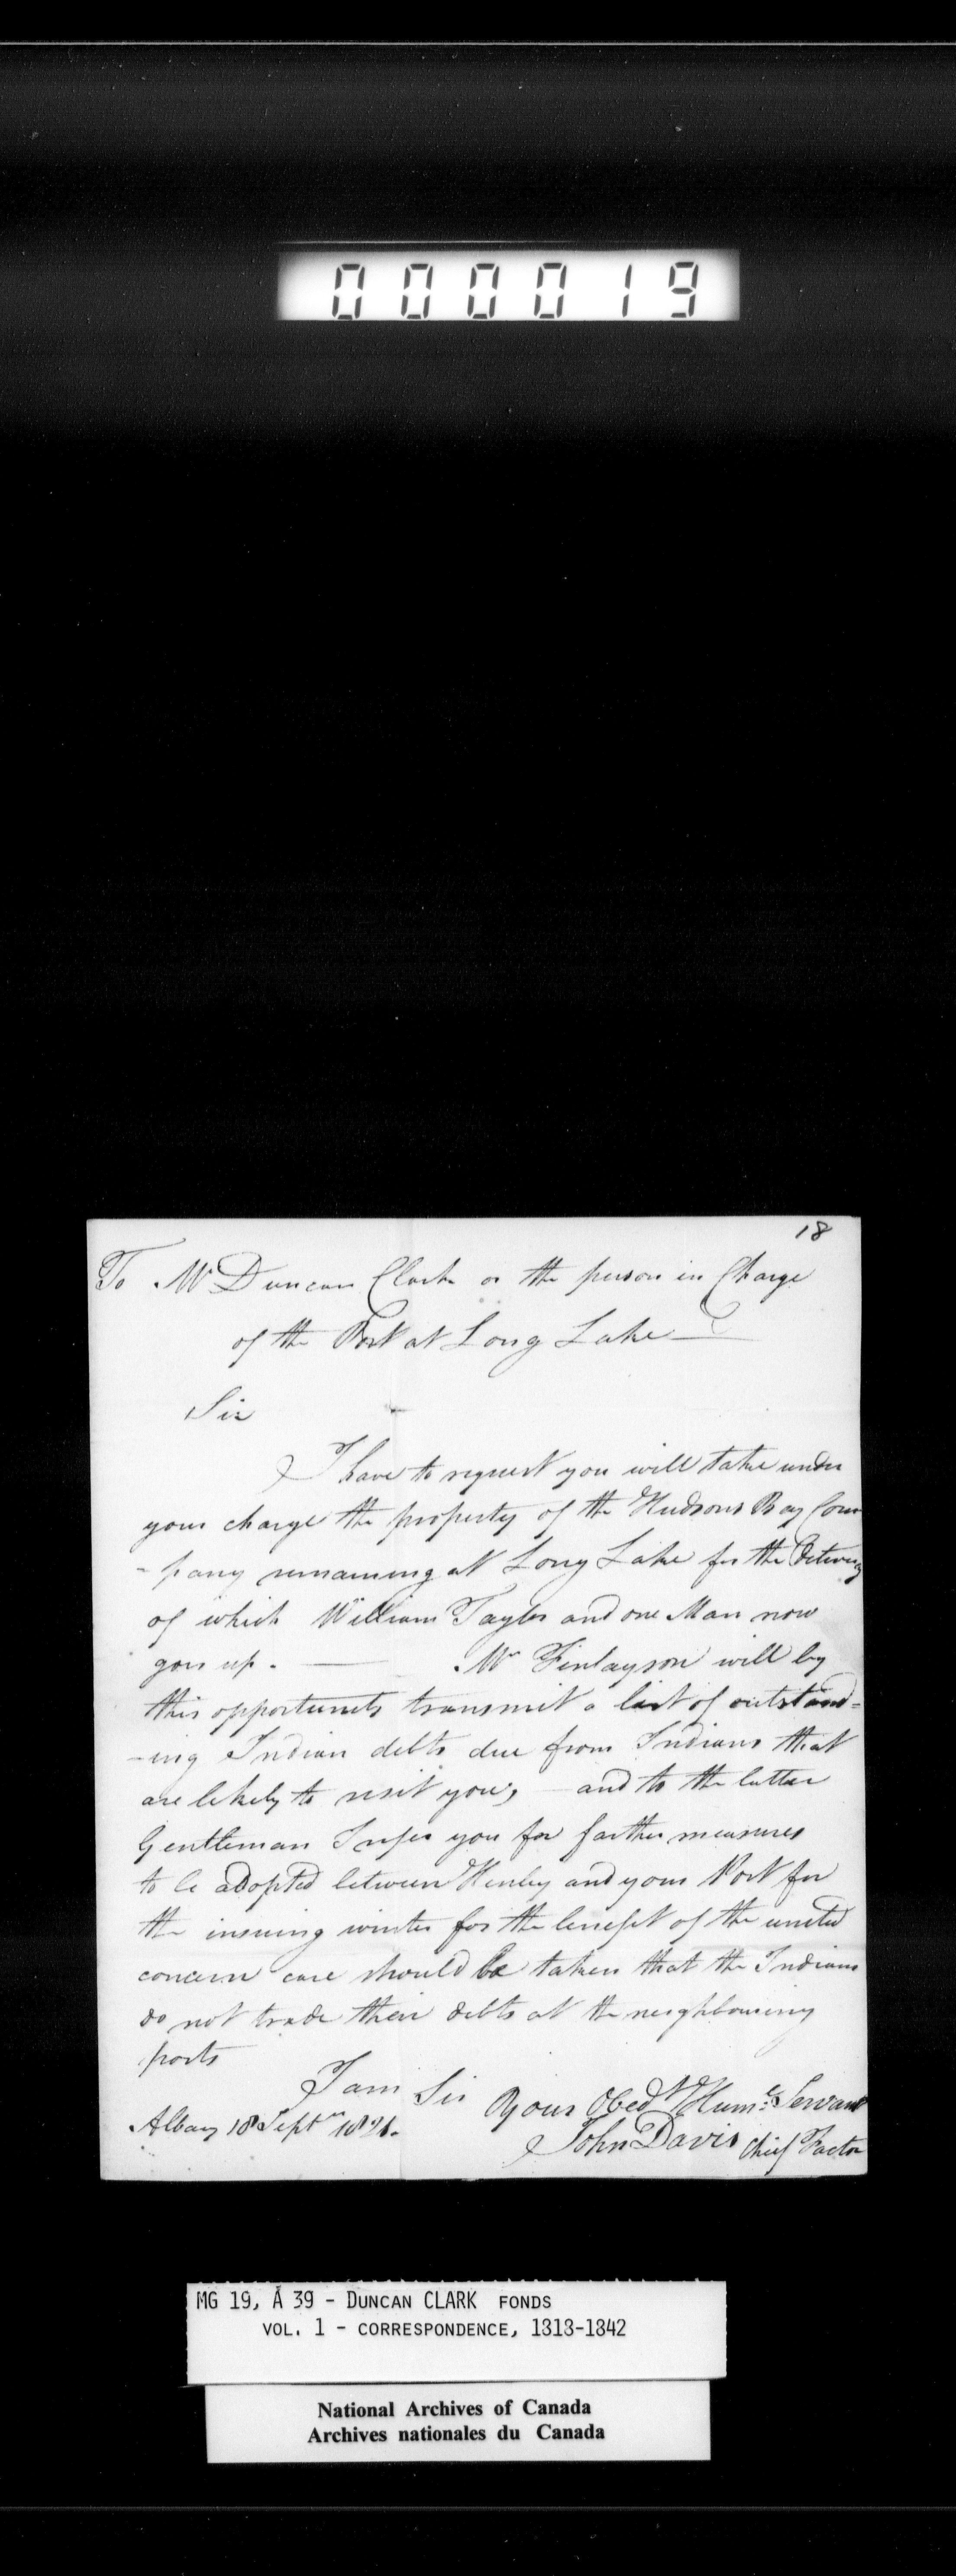 000019
18
To Mr Duncan Clark or the person in Charge
of the Post at Long Lake
Sir
I have to request you will take under
your charge the property of the Hudsons Bay Com
-pany remaining at Long Lake for the
of which William Taylor and one Man now
goes up. — Mr Finlayson will by
this opportunity transmit a list of outstand=
-ing Indian debts due from Indians that
are likely to visit you, and to the latter
Gentleman I refer you for farther measures
to be adopted between Henley and your Post for
the insuing winter for the benefit of the united
concern care should be taken that the Indians
do not trade their debts at the neighbouring
posts
I am Sir Your Obedt Humle Servant
Albany 18 Septr 1821.
John Davis Chief Factor
MG 19, A 39 - DUNCAN CLARK FONDS
VOL. 1 - CORRESPONDENCE, 1818-1842
National Archives of Canada
Archives nationales du Canada